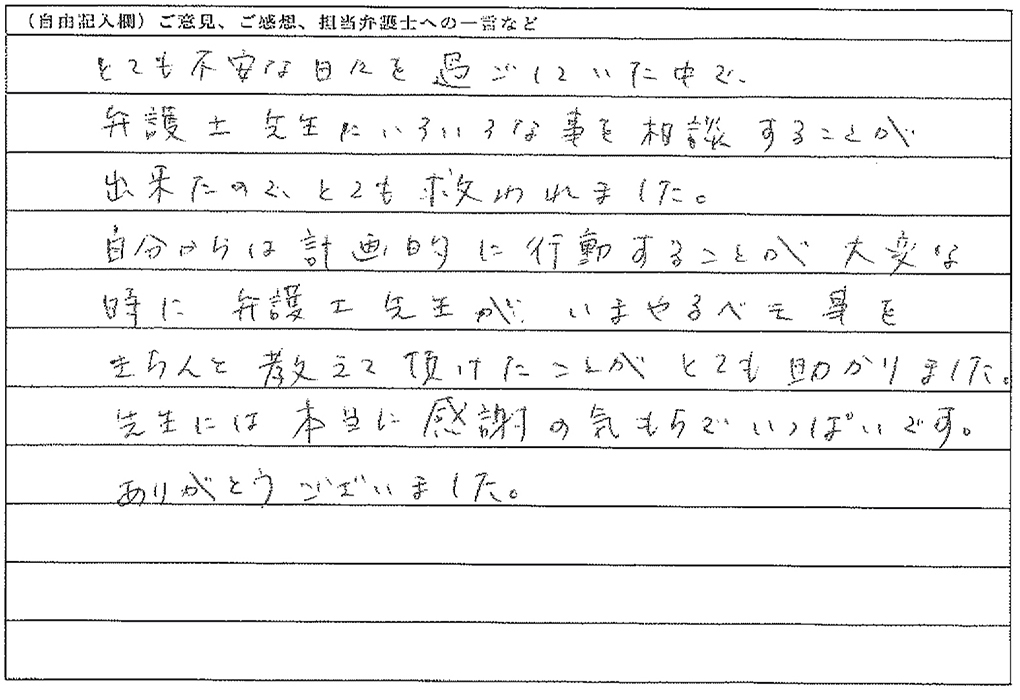 （自由記入欄）ご意見、ご感想、担当弁護士への一言など
とても不安な日々を過ごしていた中で、
弁護士先生にいろいろな事を相談することが
出来たので、とても救われました。
自分からは計画的に行動することが大変な
時に弁護士先生が、いまやるべき事を
きちんと教えて頂けたことがとても助かりました。
先生には本当に感謝の気もちでいっぱいです。
ありがとうございました。